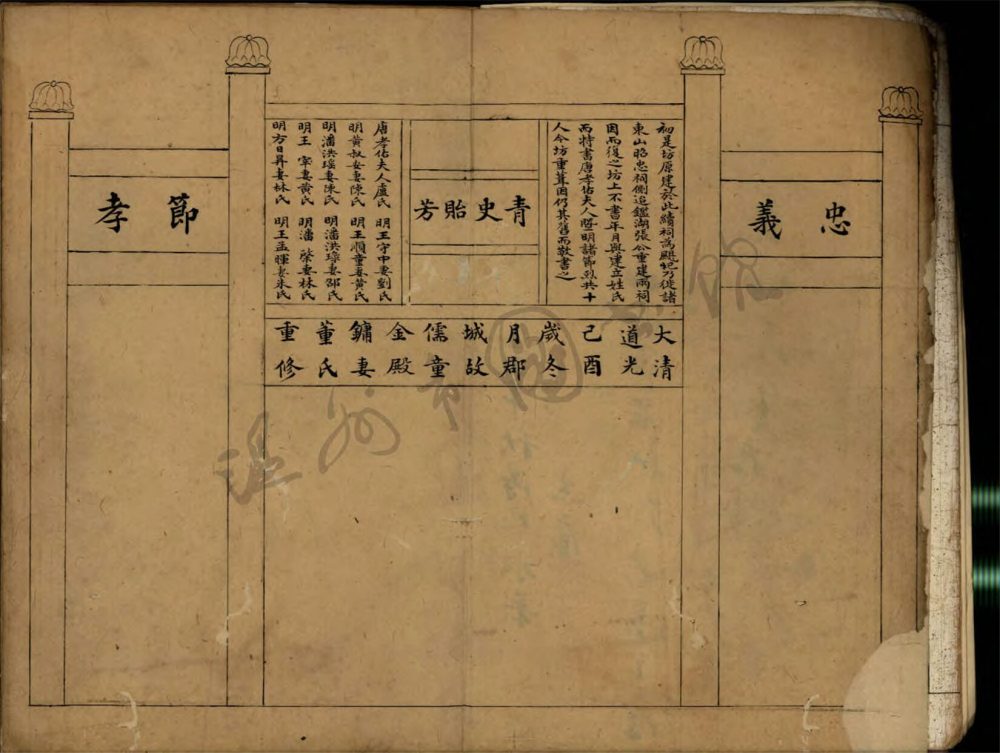 忠義
初是坊原建於此續祠為颶圮乃從諸
東山昭忠祠側迨鑑湖張公重建兩祠
因而復之坊上不書年月與建立姓氏
而特書唐孝佑夫人暨明諸節烈共十
人今坊重葺因仍其舊而敬書之
青史貽芳
唐孝佑夫人盧氏 明王守中妻劉氏
明黃叔安妻陳氏 明王順童妻黃氏
明潘洪瑤妻陳氏 明潘洪璋妻邵氏
明王 寧妻黃氏 明潘 榮妻林氏
明方日昇妻林氏 明王孟暉妻朱氏
大清
道光
己酉
歲冬
月郡
城故
儒童
金殿
鏞妻
董氏
重修
節孝
溫州市圖書館